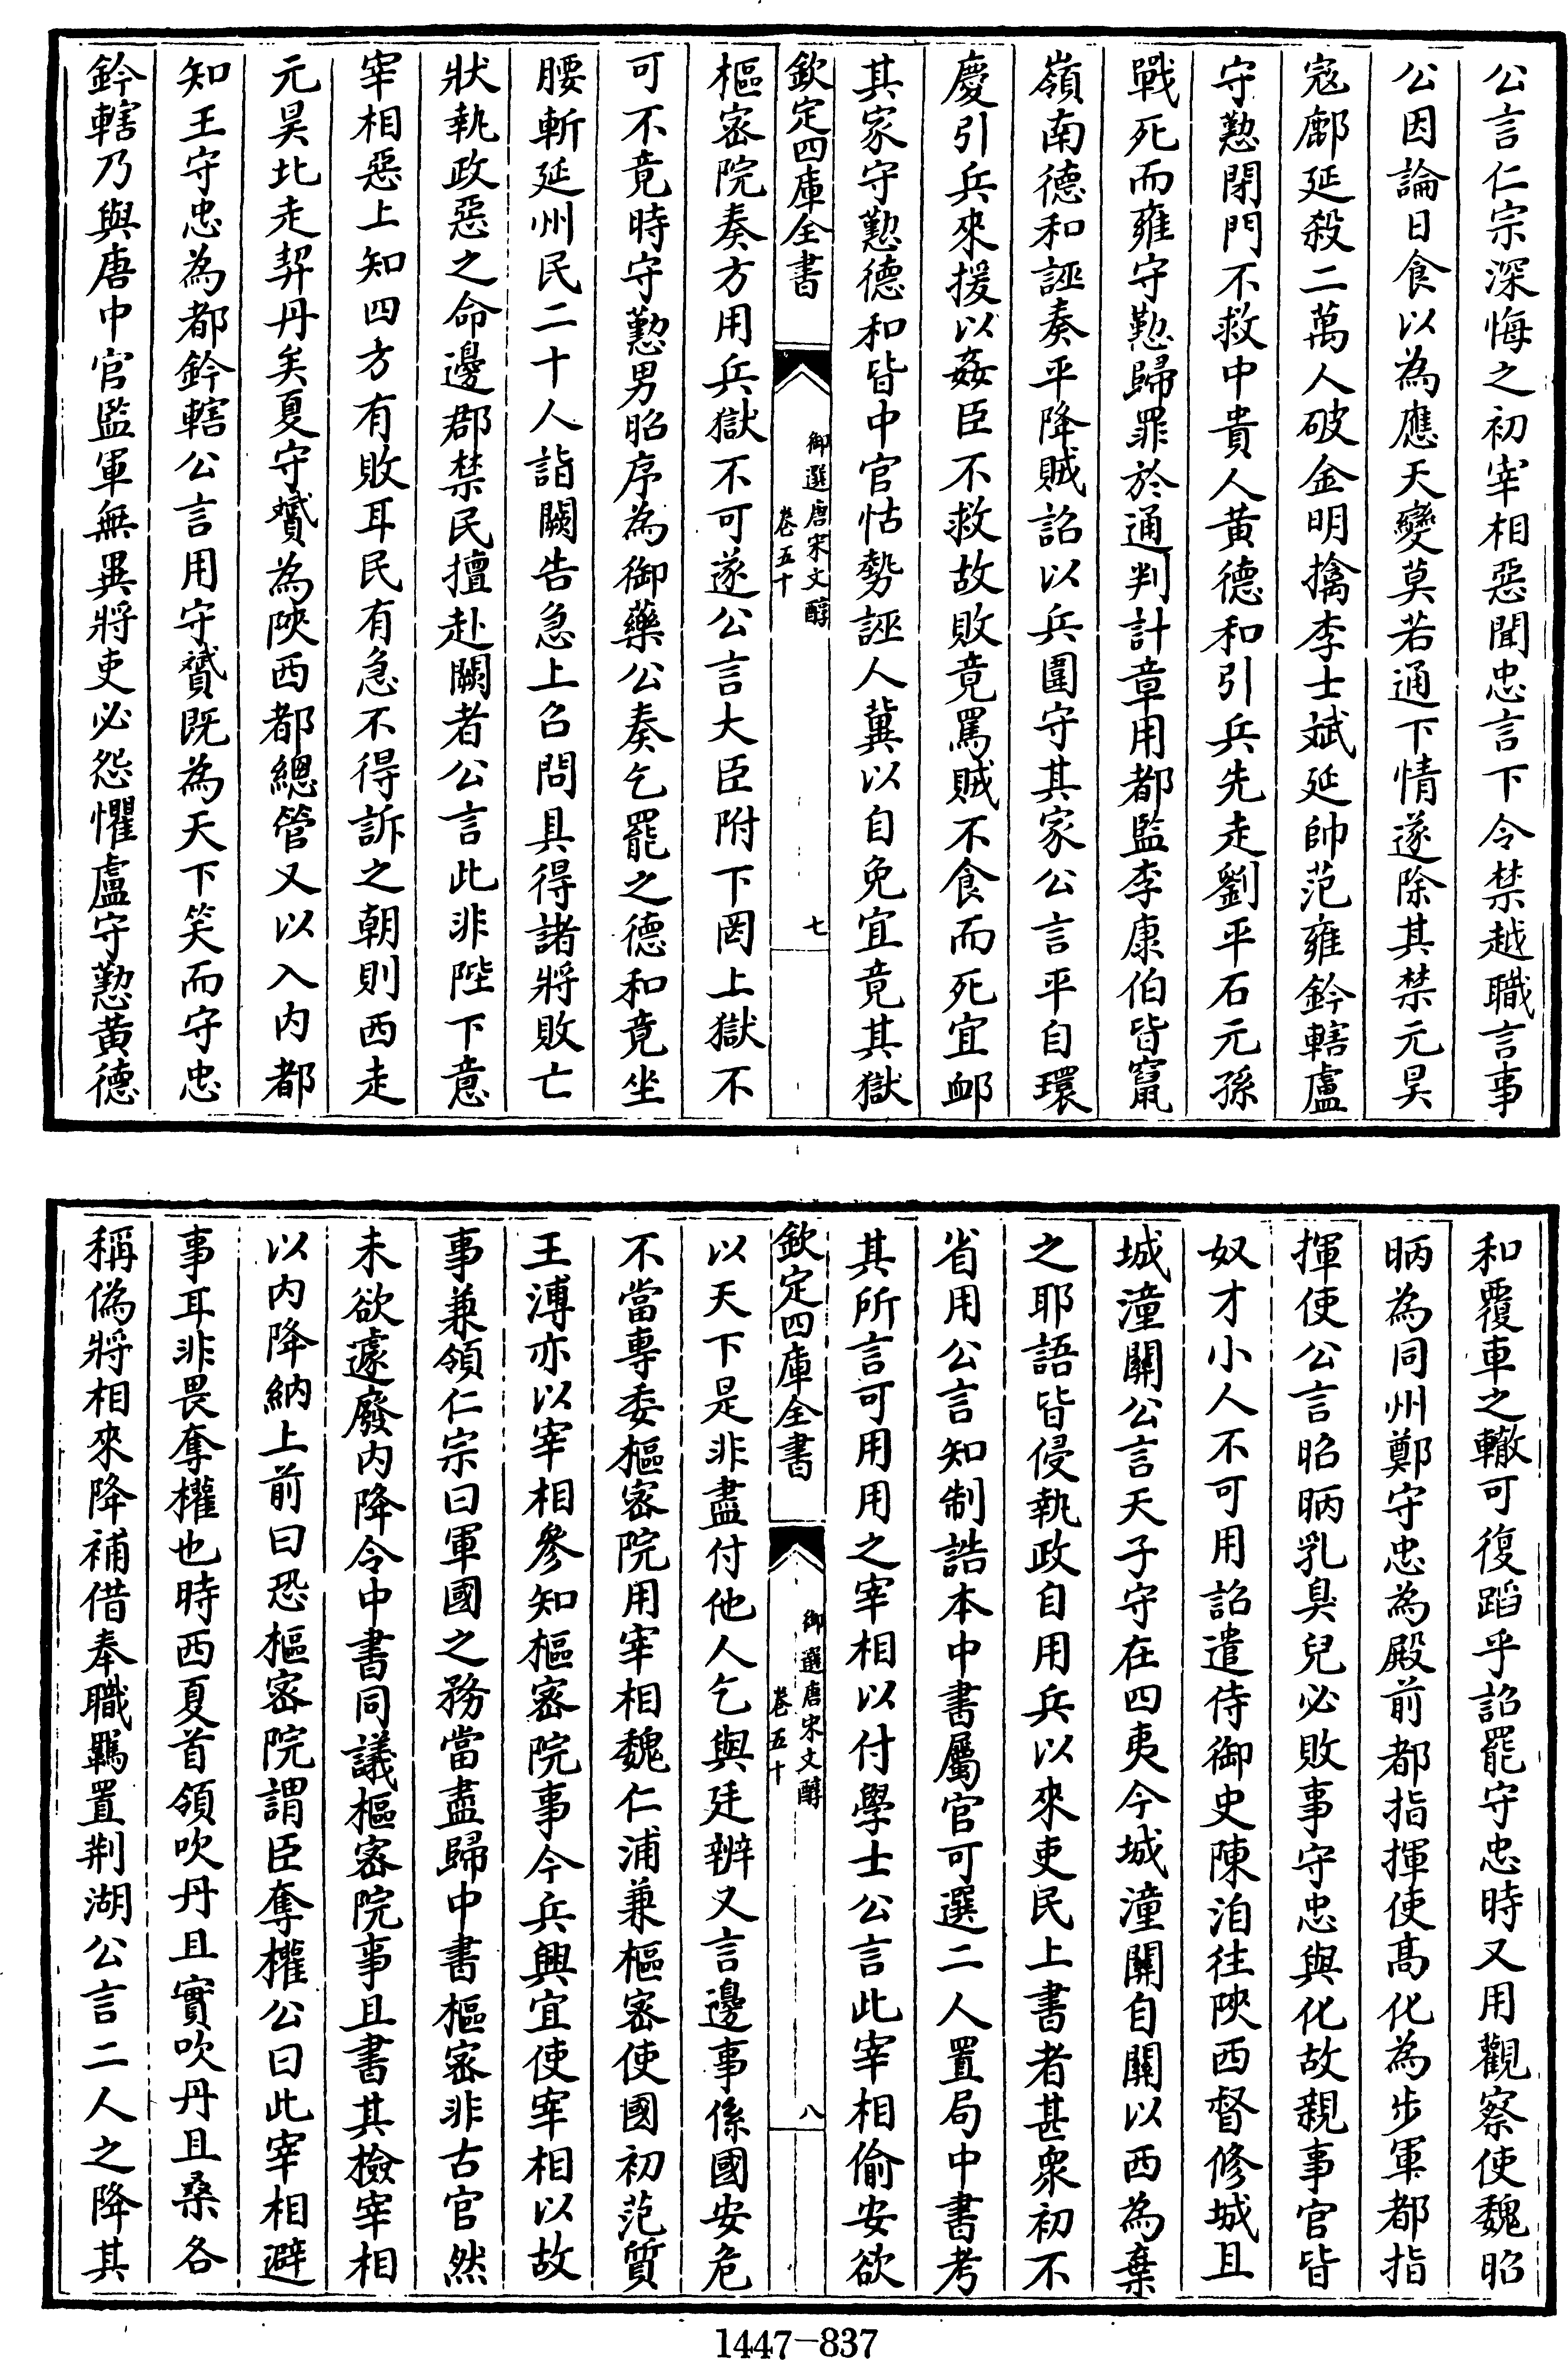 公言仁宗深悔之初宰相惡聞忠言下令禁越職言事
公因論日食以為應天變莫若通下情遂除其禁元昊
寇鄜延殺二萬人破金明擒李士斌延帥范雍鈐轄盧
守懃閉門不救中貴人黃德和引兵先走劉平石元孫
戰死而雍守懃歸罪於通判計章用都監李康伯皆竄
嶺南德和誣奏平降賊詔以兵圍守其家公言平自環
慶引兵來援以姦臣不救故敗竟罵賊不食而死宜卹
其家守懃德和皆中官怙勢誣人冀以自免宜竟其獄
欽定四庫全書
御選唐宋文醇
卷五十
七
樞密院奏方用兵獄不可遂公言大臣附下罔上獄不
可不竟時守懃男昭序為御藥公奏乞罷之德和竟坐
腰斬延州民二十人詣闕告急上召問具得諸將敗亡
狀執政惡之命邊郡禁民擅赴闕者公言此非陛下意
宰相惡上知四方有敗耳民有急不得訴之朝則西走
元昊北走契丹矣夏守贇為陝西都總管又以入內都
知王守忠為都鈐轄公言用守贇既為天下笑而守忠
鈐轄乃與唐中官監軍無異將吏必怨懼盧守懃黃德
和覆車之轍可復蹈乎詔罷守忠時又用觀察使魏昭
昞為同州鄭守忠為殿前都指揮使高化為步軍都指
揮使公言昭昞乳臭兒必敗事守忠與化故親事官皆
奴才小人不可用詔遣侍御史陳洎往陝西督修城且
城潼關公言天子守在四夷今城潼關自關以西為棄
之耶語皆侵執政自用兵以來吏民上書者甚衆初不
省用公言知制誥本中書屬官可選二人置局中書考
其所言可用用之宰相以付學士公言此宰相偷安欲
欽定四庫全書
御選唐宋文醇
卷五十
八
以天下是非盡付他人乞與廷辨又言邊事係國安危
不當專委樞密院用宰相魏仁浦兼樞密使國初范質
王溥亦以宰相參知樞密院事今兵興宜使宰相以故
事兼領仁宗曰軍國之務當盡歸中書樞密非古官然
未欲遽廢內降令中書同議樞密院事且書其檢宰相
以內降納上前曰恐樞密院謂臣奪權公曰此宰相避
事耳非畏奪權也時西夏首領吹丹且實吹丹且桑各
稱偽將相來降補借奉職羈置荆湖公言二人之降其
1447-837